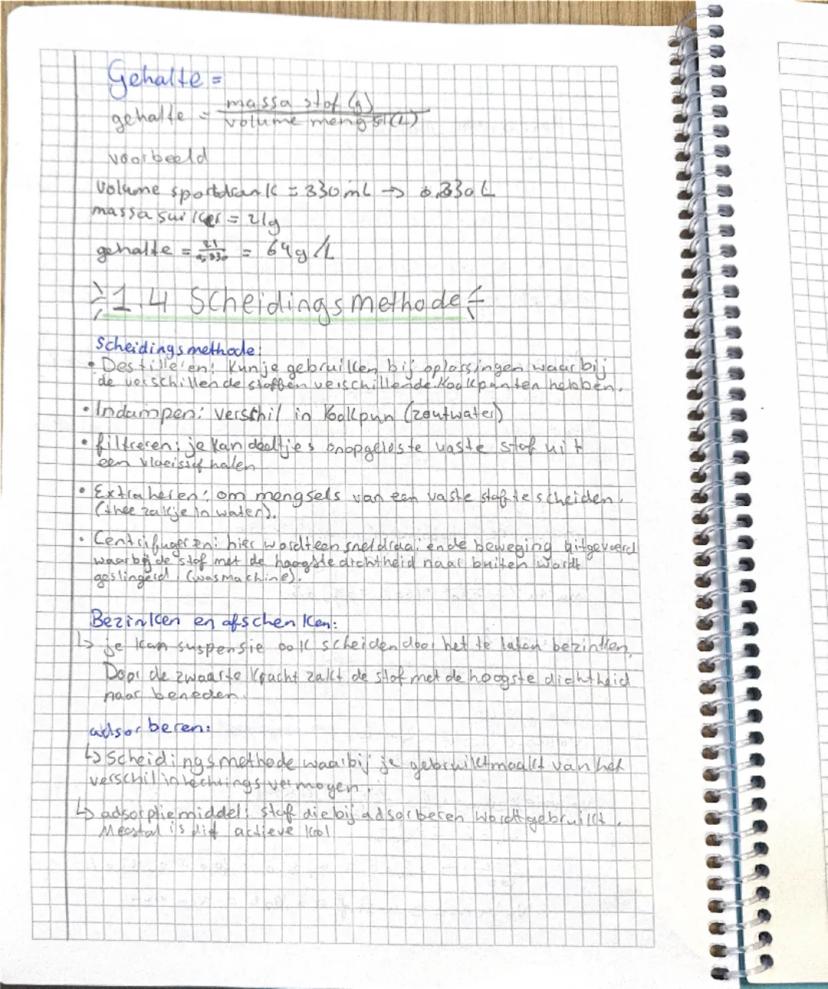 Gehalte =
gehalte = massa stof (g)
volume mengsel (L)
voorbeeld
volume sportdrank = 330 mL → 0,330 L
massa suiker = 21g
gehalte = 21 / 0,330 = 64 g/L
1.4 Scheidingsmethode
Scheidingsmethode:
• Destilleren: kun je gebruiken bij oplossingen waarbij
de verschillende stoffen verschillende kookpunten hebben.
• Indampen: verschil in kookpun (zoutwater)
• filtreren: je kan deeltjes onopgeloste vaste stof uit
een vloeistof halen
• Extraheren: om mengsels van een vaste stof te scheiden.
(thee zakje in water).
• Centrifugeren: hier wordt een sneldraaiende beweging uitgevoerd
waarbij de stof met de hoogste dichtheid naar buiten wordt
geslingerd. (wasmachine).
Bezinken en afschenken:
↳ je kan suspensie ook scheiden door het te laten bezinken.
Door de zwaarte kracht zakt de stof met de hoogste dichtheid
naar beneden.
adsorberen:
↳ scheidingsmethode waarbij je gebruikt maakt van het
verschil in hechtings vermogen.
↳ adsorptiemiddel: stof die bij adsorberen wordt gebruikt.
Meestal is dit actieve kool